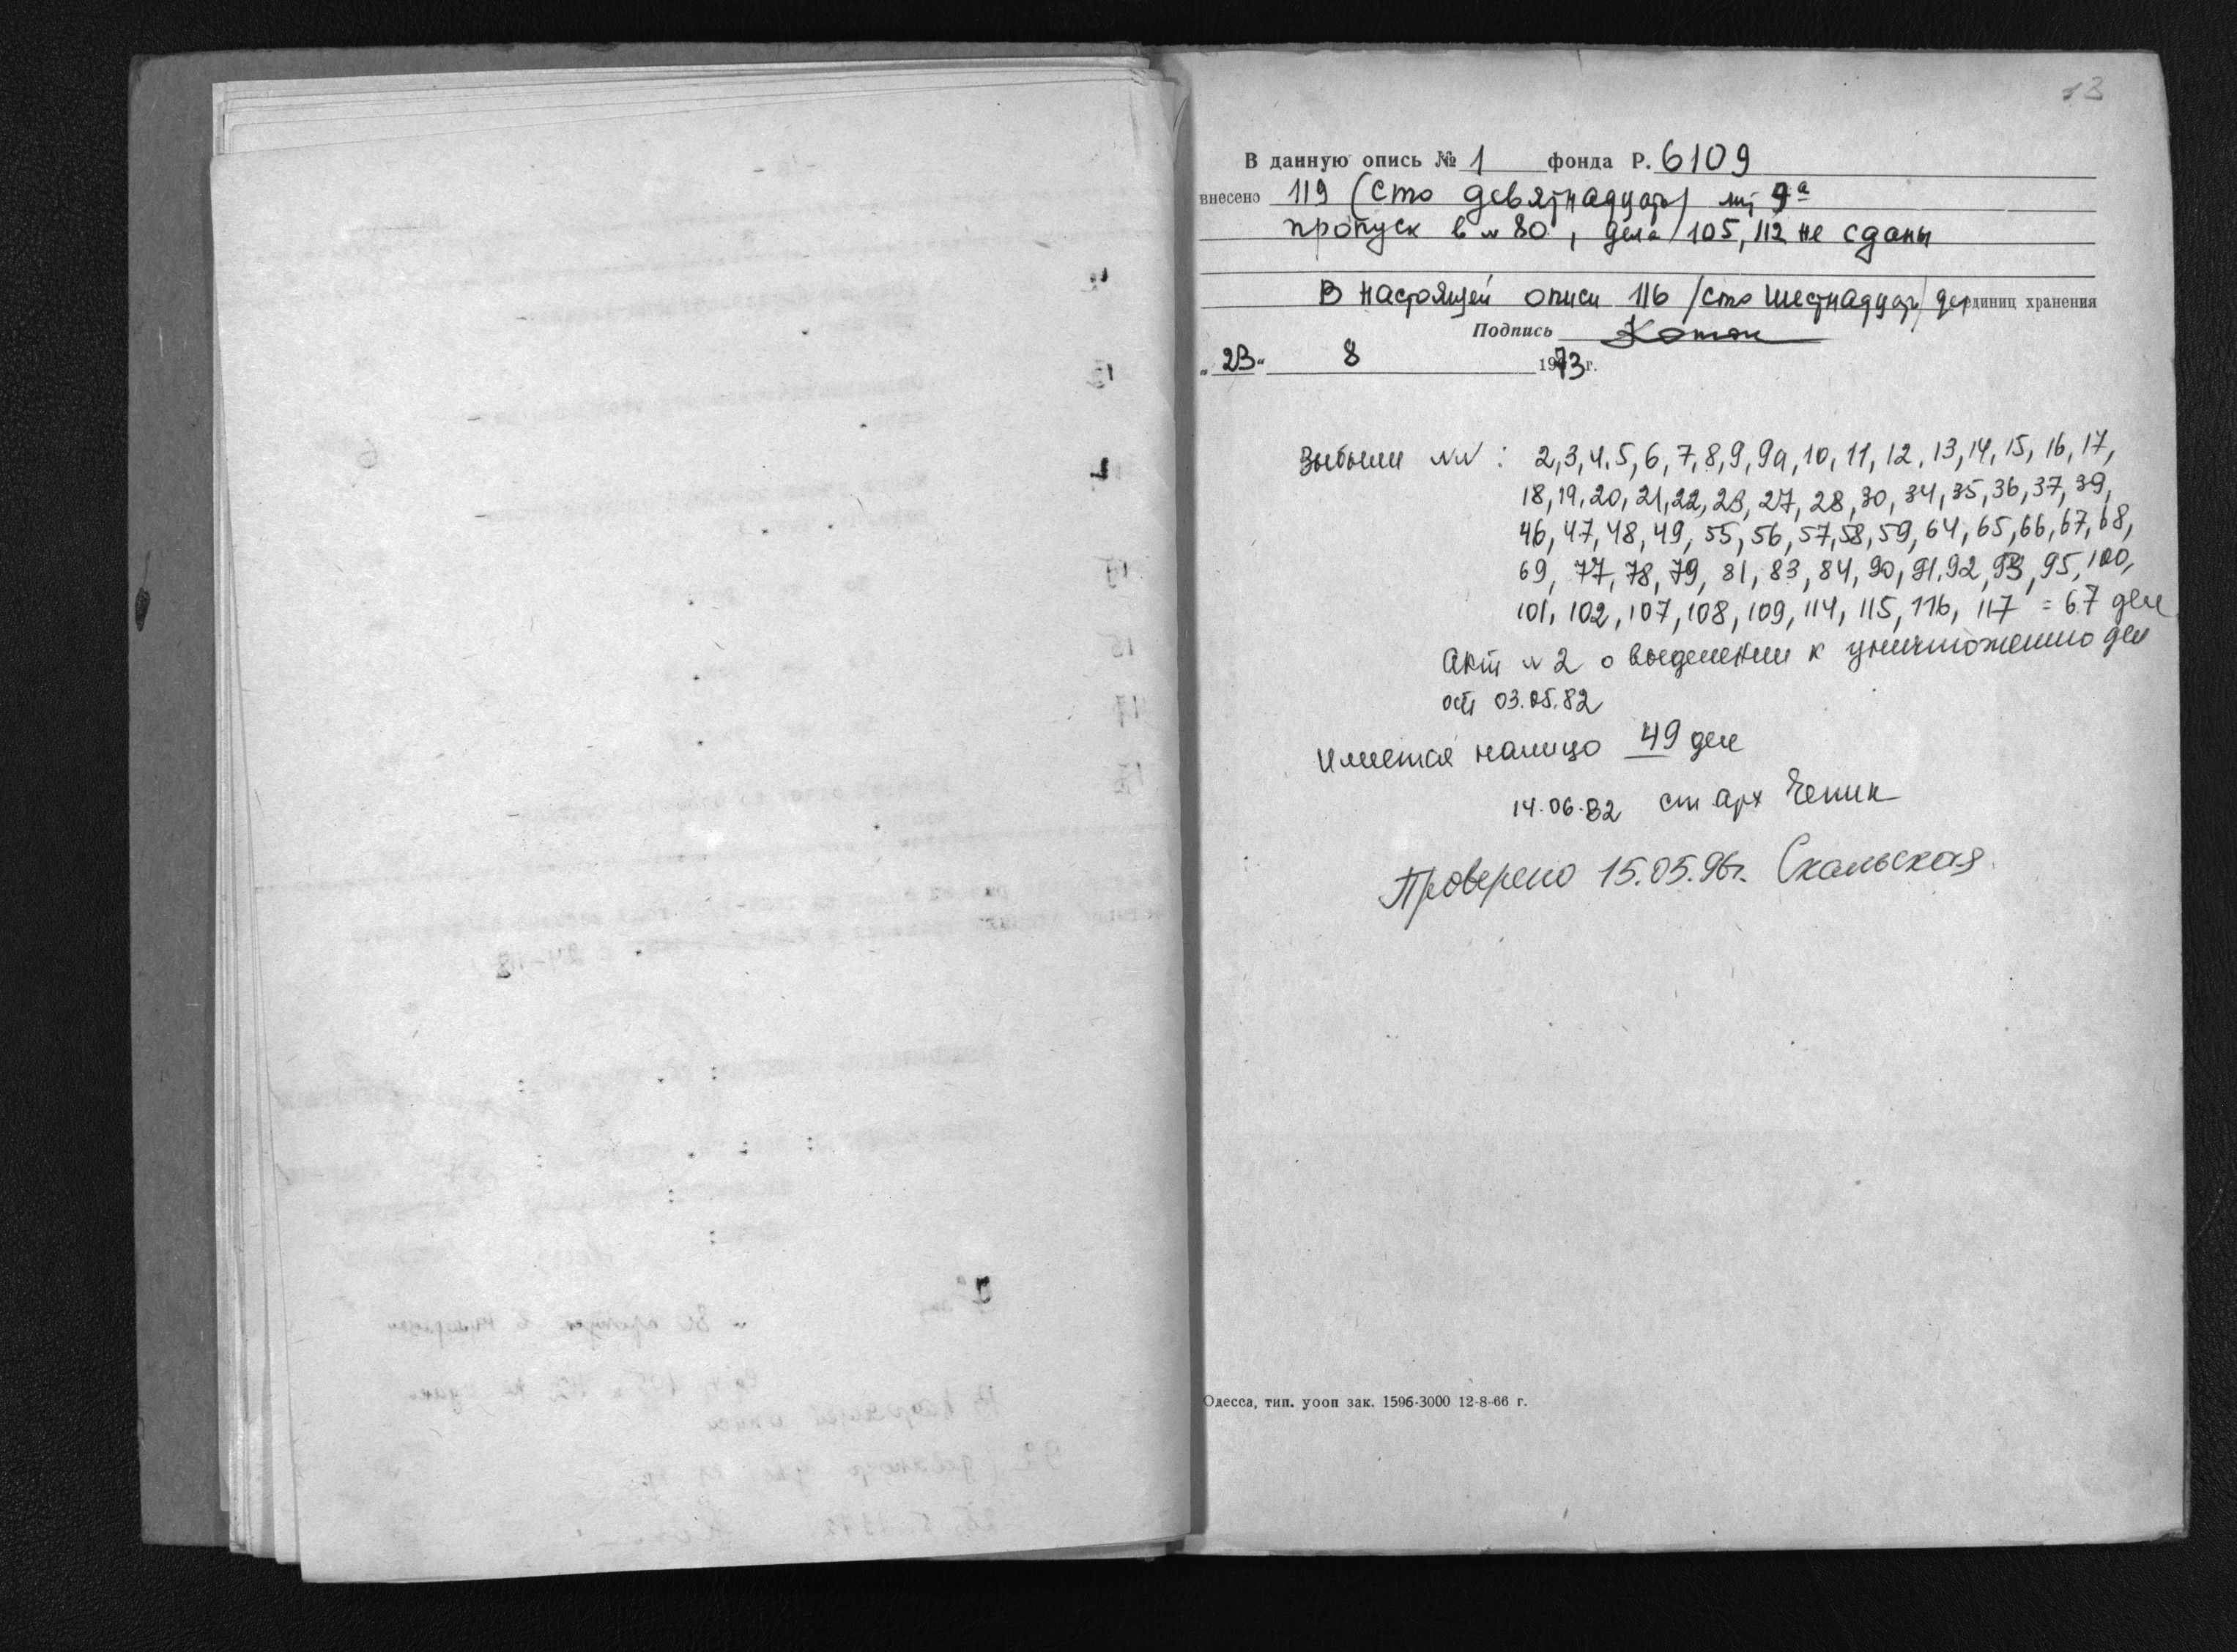 13
В данную опись № 1 фонда Р. 6109
внесено 119 (сто девятнадцать) лит 9а
пропуск в № 80, дела 105, 112 не сданы
В настоящей описи 116 /сто шестнадцать/ дел единиц хранения
Подпись
"23" 8 1973 г.
Выбыли №№: 2,3,4,5,6,7,8,9,9а,10,11,12,13,14,15,16,17,
18,19,20,21,22,23,27,28,30,34,35,36,37,39,
46,47,48,49,55,56,57,58,59,64,65,66,67,68,
69,77,78,79,81,83,84,90,91,92,93,95,100,
101,102,107,108,109,114,115,116,117 = 67 дел
Акт № 2 о выделении к уничтожению дел
от 03.05.82
Имеется налицо 49 дел
14.06.82 ст арх Чепик
Проверено 15.05.96г. Скальская
Одесса, тип. уооп зак. 1596-3000 12-8-66 г.